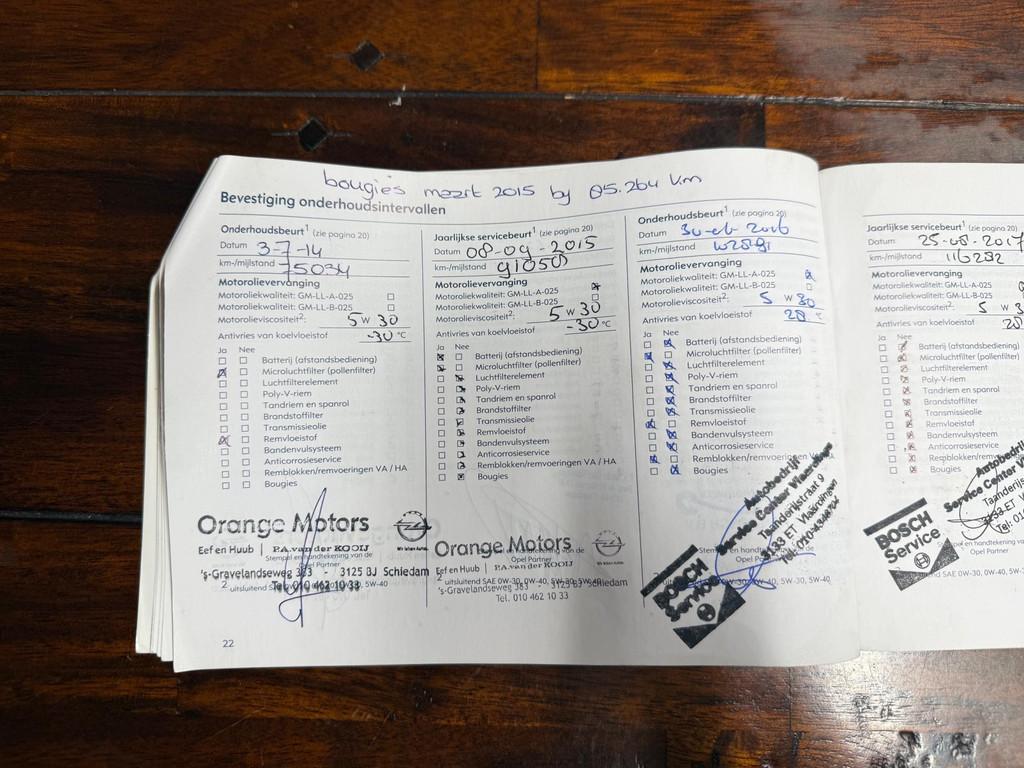 bougies meert 2015 by 85.264 km
Bevestiging onderhoudsintervallen
Onderhoudsbeurt¹ (zie pagina 20)
Datum 3-7-14
km-/mijlstand 75034
Motorolievervanging
Motoroliekwaliteit: GM-LL-A-025
Motoroliekwaliteit: GM-LL-B-025
Motorolieviscositeit²: 5 W 30
Antivries van koelvloeistof -30 °C
Ja Nee
Batterij (afstandsbediening)
Microluchtfilter (pollenfilter)
Luchtfilterelement
Poly-V-riem
Tandriem en spanrol
Brandstoffilter
Transmissieolie
Remvloeistof
Bandenvulsysteem
Anticorrosieservice
Remblokken/remvoeringen VA / HA
Bougies
Orange Motors
Eef en Huub | P.A. van der KOOIJ
Stempel en handtekening van de
Opel Partner
's-Gravelandseweg 383 - 3125 BJ Schiedam
Tel. 010 462 10 33
22
Jaarlijkse servicebeurt¹ (zie pagina 20)
Datum 08-04-2015
km-/mijlstand 91050
Motorolievervanging
Motoroliekwaliteit: GM-LL-A-025
Motoroliekwaliteit: GM-LL-B-025
Motorolieviscositeit²: 5 W 30
Antivries van koelvloeistof -30 °C
Ja Nee
Batterij (afstandsbediening)
Microluchtfilter (pollenfilter)
Luchtfilterelement
Poly-V-riem
Tandriem en spanrol
Brandstoffilter
Transmissieolie
Remvloeistof
Bandenvulsysteem
Anticorrosieservice
Remblokken/remvoeringen VA / HA
Bougies
Orange Motors
Eef en Huub | P.A. van der KOOIJ
² uitsluitend SAE 0W-30, 0W-40, 5W-30, 5W-40
's-Gravelandseweg 383 - 3125 BJ Schiedam
Tel. 010 462 10 33
Onderhoudsbeurt¹ (zie pagina 20)
Datum
km-/mijlstand
Motorolievervanging
Motoroliekwaliteit: GM-LL-A-025
Motoroliekwaliteit: GM-LL-B-025
Motorolieviscositeit²: 5 W 30
Antivries van koelvloeistof 28 °C
Ja Nee
Batterij (afstandsbediening)
Microluchtfilter (pollenfilter)
Luchtfilterelement
Poly-V-riem
Tandriem en spanrol
Brandstoffilter
Transmissieolie
Remvloeistof
Bandenvulsysteem
Anticorrosieservice
Remblokken/remvoeringen
Bougies
BOSCH
Service
Autobedrijf
Service Center Vlaardingen
Taanderijstraat 9
3133 ET Vlaardingen
Jaarlijkse servicebeurt¹ (zie pagina 20)
Datum 25-08-2017
km-/mijlstand 116292
Motorolievervanging
Motoroliekwaliteit: GM-LL-A-025
Motoroliekwaliteit: GM-LL-B-025
Motorolieviscositeit²: 5 W
Antivries van koelvloeistof 28
Ja Nee
Batterij (afstandsbediening)
Microluchtfilter (pollenfilter)
Luchtfilterelement
Poly-V-riem
Tandriem en spanrol
Brandstoffilter
Transmissieolie
Remvloeistof
Bandenvulsysteem
Anticorrosieservice
Remblokken/remvoeringen
Bougies
BOSCH
Service
Autobedrijf
Service Center
3133 ET